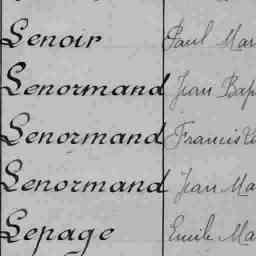 Lenoir Paul Mar
Lenormand Jean Bap
Lenormand Francis
Lenormand Jean Ma
Lepage Emile Ma